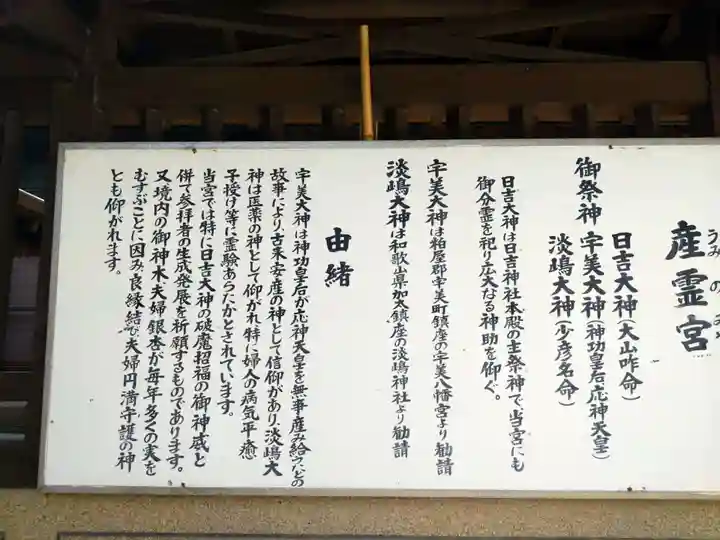 産霊宮
うみのみや
御祭神
日吉大神(大山咋命)
宇美大神(神功皇后、応神天皇)
淡嶋大神(少彦名命)
日吉大神は日吉神社本殿の主祭神で、当宮にも
御分霊を祀り広大なる神助を仰ぐ。
宇美大神は粕屋郡宇美町鎮座の宇美八幡宮より勧請
淡嶋大神は和歌山県加太鎮座の淡嶋神社より勧請
由緒
宇美大神は神功皇后が応神天皇を無事産み給うたとの
故事により、古来、安産の神として信仰があり、淡嶋大
神は医薬の神として仰がれ、特に婦人の病気平癒
子授け等に霊験あらたかとされています。
当宮では特に日吉大神の破魔招福の御神威と
併せて参拝者の生成発展を祈願するものであります。
又、境内の御神木夫婦銀杏が毎年多くの実を
むすぶことに因み、良縁結び、夫婦円満守護の神
とも仰がれます。